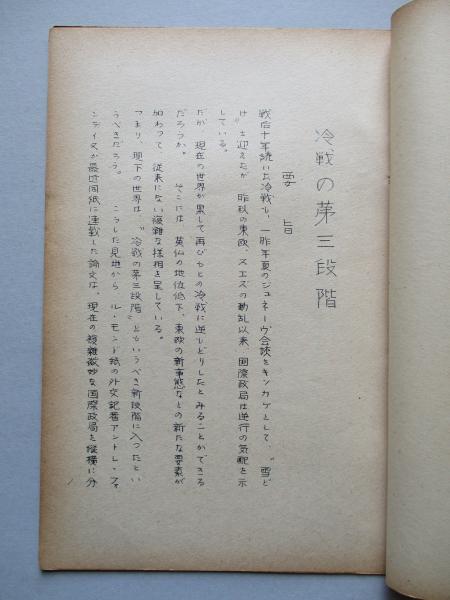 冷戦の第三段階
要旨
戦后十年続いた冷戦も、一昨年夏のジュネーヴ会談をキッカケとして、〝雪ど
け〟を迎えたが、昨秋の東欧、スエズの動乱以来、国際政局は逆行の気配を示
している。
だが、現在の世界が果して再びもとの冷戦に逆もどりしたとみることができる
だろうか。そこには、英仏の地位低下、東欧の新事態などの新たな要素が
加わって、従来にない複雑な様相を呈している。
つまり、現下の世界は、〝冷戦の第三段階〟ともいうべき新段階に入つたとい
うべきだろう。こうした見地から、ル・モンド紙の外交記者アンドレ・フォ
ンテイヌが最近同紙に連載した論文は、現在の複雑微妙な国際政局を縦横に分